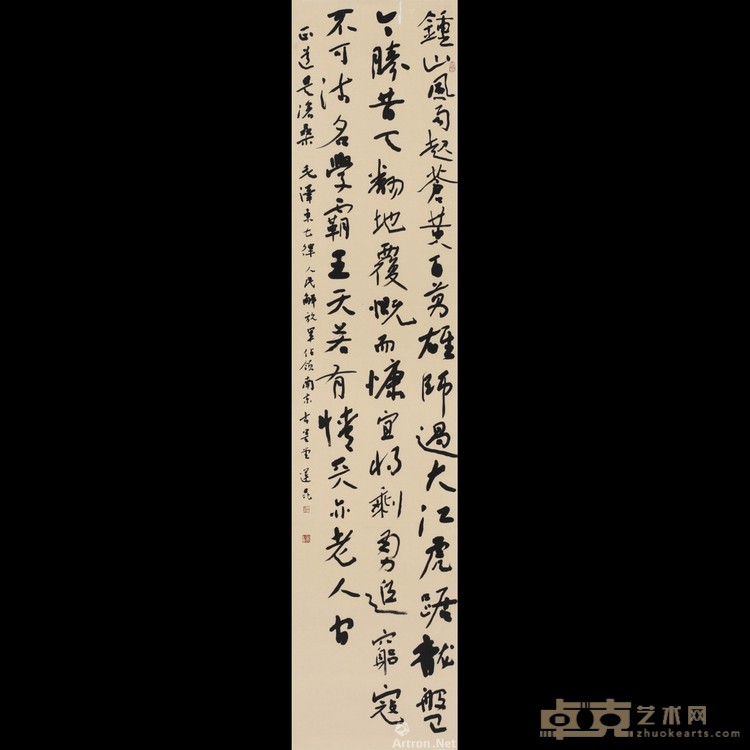 鍾山風雨起蒼黃百萬雄師過大江虎踞龍盤
今勝昔天翻地覆慨而慷宜將剩勇追窮寇
不可沽名學霸王天若有情天亦老人間
正道是滄桑 毛澤東七律人民解放軍佔領南京
卓克艺术网
zhuokearts.com
Artron.Net